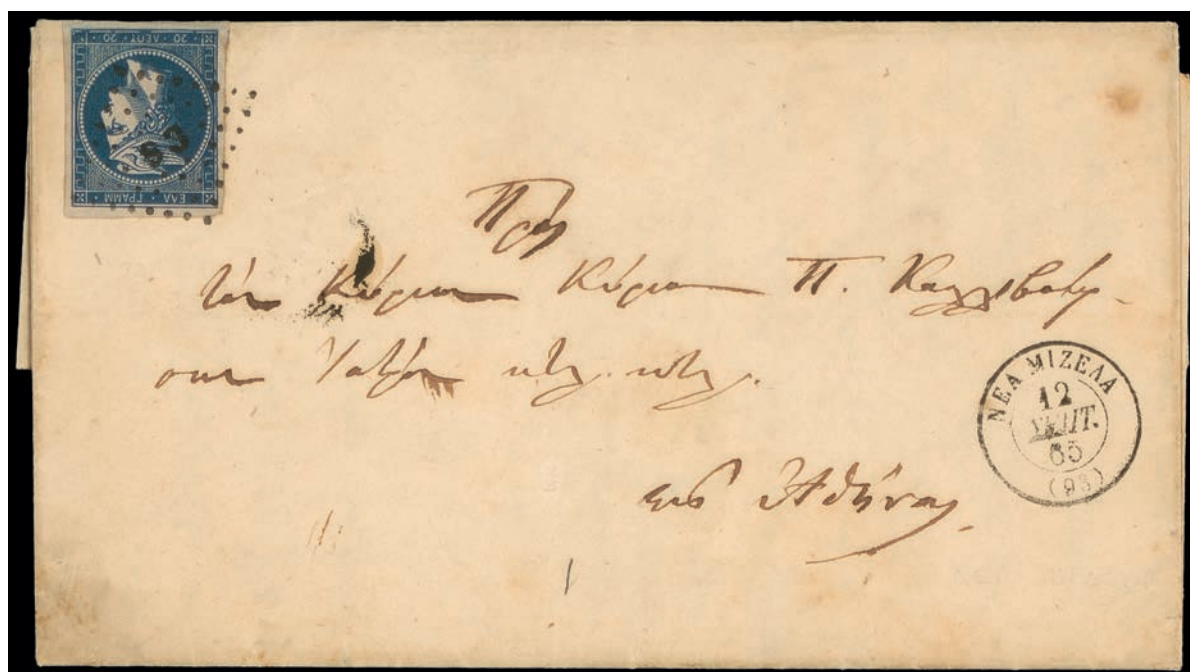 20 · ΛΕΠΤ · 20
ΕΛΛ · ΓΡΑΜΜ
93
Πρὸς
τὸν Κύριον Κύριον Π.
κτλ. κτλ.
εἰς Ἀθήνας
ΝΕΑ ΜΙΖΕΛΑ
12
ΣΕΠΤ.
65
(93)